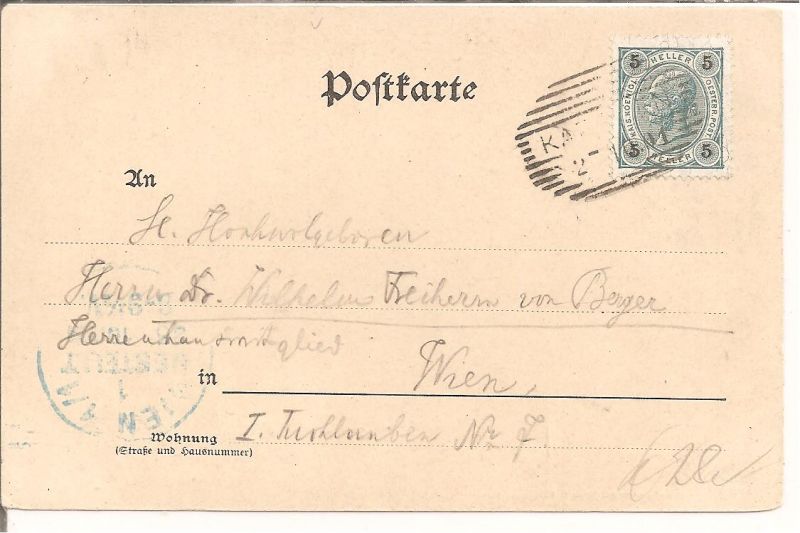 Postkarte
5 HELLER 5
KAIS. KOENIGL. OESTERR. POST.
5 HELLER 5
KA
2
An
Sr. Hochwolgeboren
Herrn Dr. Wilhelm Freiherrn von Berger
Herrenhausmitglied
in Wien,
Wohnung I. Tuchlauben Nr 7
(Straße und Hausnummer)
WIEN 1/1
BESTELLT